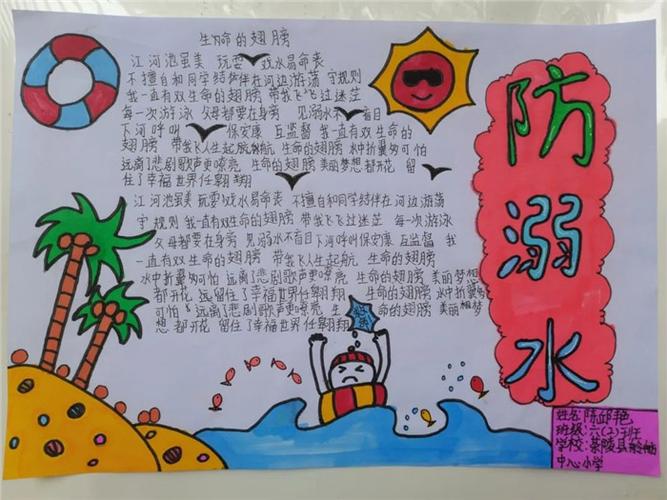 生命的翅膀
江河池虽美 玩耍 戏水易命丧
不擅自和同学结伴在河边游荡 守规则
我一直有双生命的翅膀 带我飞飞过迷茫
每一次游泳 父母都要在身旁 见溺水不盲目
下河呼叫 保安康 互监督 我一直有双生命的
翅膀 带我飞人生起航 生命的翅膀 水中折翼匆可怕
远离了悲剧歌声更嘹亮 生命的翅膀 美丽梦想 都开花 留
住了幸福世界任翱翔
江河池虽美 玩耍戏水易命丧 不擅自和同学结伴在河边游荡
守规则 我一直有双生命的翅膀 带我飞飞过迷茫 每一次游泳
父母都要在身旁 见溺水不盲目下河呼叫保安康 互监督 我
一直有双生命的翅膀 带我飞人生起航 生命的翅膀
水中折翼匆可怕 远离了悲剧歌声更嘹亮 生命的翅膀 美丽梦想
都开花 留住了幸福世界任翱翔 生命的翅膀 水中折翼匆
可怕 远离了悲剧歌声更嘹亮 生命的翅膀 美丽梦想
都开花 留住了幸福世界任翱翔
防溺水
姓名:陈邱艳
班级:六(2)班
学校:茶陵县
中心小学